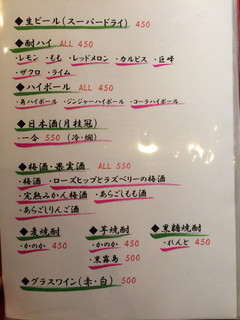 ◆生ビール(スーパードライ) 450
◆酎ハイ ALL 450
・レモン ・もも ・レッドメロン ・カルピス ・巨峰
・ザクロ ・ライム
◆ハイボール ALL 450
・角ハイボール ・ジンジャーハイボール ・コーラハイボール
◆日本酒(月桂冠)
・一合 550 (冷・燗)
◆梅酒・果実酒 ALL 550
・梅酒 ・ローズヒップとラズベリーの梅酒
・完熟みかん梅酒 ・あらごしもも酒
・あらごしりんご酒
◆麦焼酎 ◆芋焼酎 ◆黒糖焼酎
・かのか 450 ・かのか 450 ・れんと 450
・黒霧島 500
◆グラスワイン(赤・白) 500